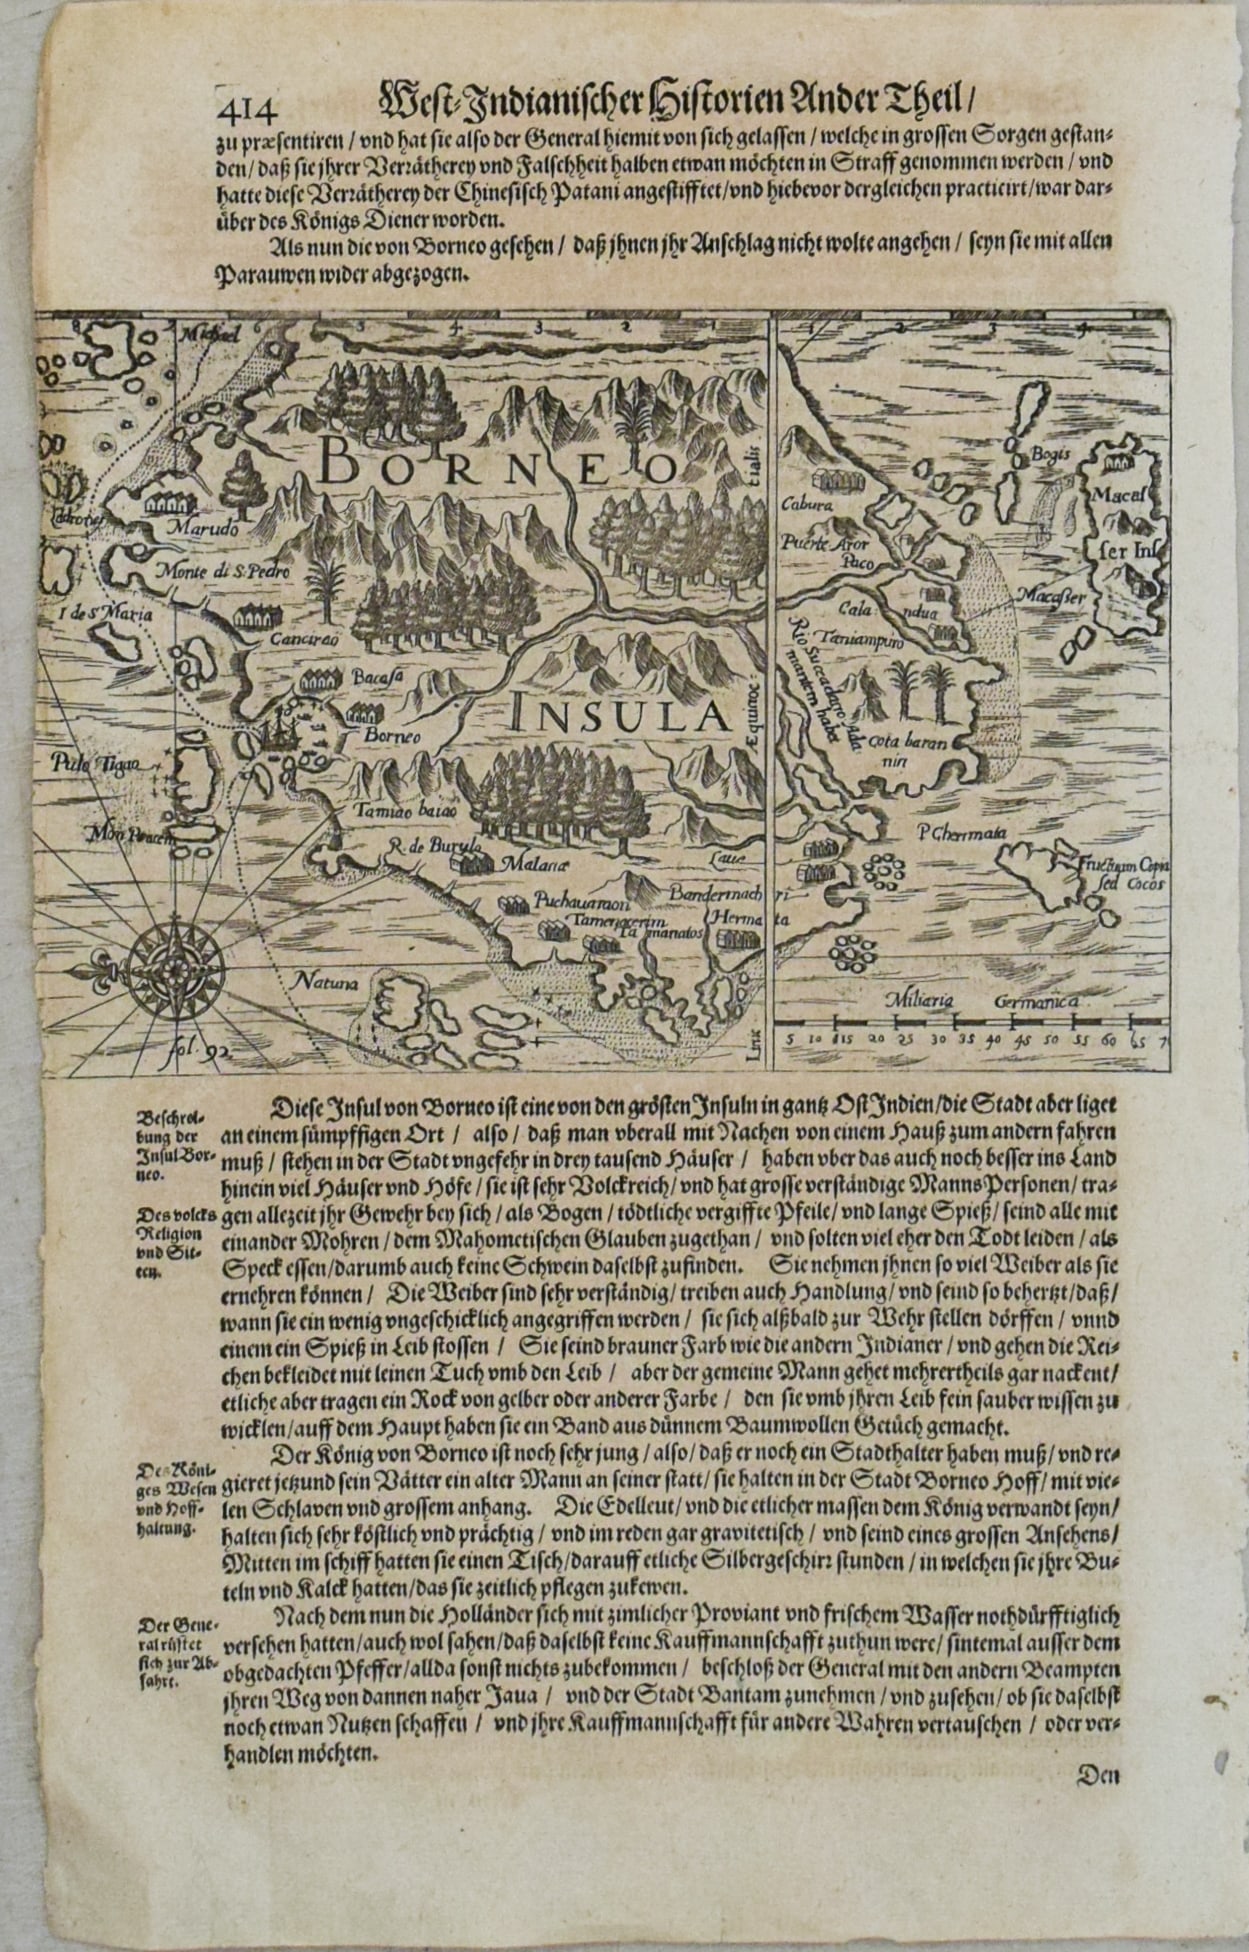 414 West-Indianischer Historien Ander Theil/
zu præsentiren / vnd hat sie also der General hiemit von sich gelassen / welche in grossen Sorgen gestan-
den / daß sie jhrer Verrätherey vnd Falschheit halben etwan möchten in Straff genommen werden / vnd
hatte diese Verrätherey der Chinesisch Patani angestifftet/vnd hiebevor dergleichen practicirt/war dar-
über des Königs Diener worden.
Als nun die von Borneo gesehen / daß jhnen jhr Anschlag nicht wolte angehen / seyn sie mit allen
Parauwen wider abgezogen.
6 5 4 3 2 1 1 2 3 4
BORNEO
INSULA
Marudo
Monte di S. Pedro
I de S. Maria
Cancirao
Bacasa
Borneo
Pulo Tigao
Tamiao baiao
R. de Burulo
Malana
Puchauaraon
Tamenacerim
Ta manatos
Laue
Bandermach ri
Herma ta
Natuna
fol. 92
Æquinoc
tialis
Lini
Cabura
Puerte Aror
Paco
Cala ndua
Taniampuro
Rio Succadano
cota baran
nin
Bogis
Macas
ser Ins
Macasser
P Chermata
Fructuum Copia
sed Cocos
Miliaria Germanica
5 10 15 20 25 30 35 40 45 50 55 60 65 7
Beschrei-
bung der
Insul Bor-
neo.
Diese Insul von Borneo ist eine von den grösten Insuln in gantz Ost Indien/die Stadt aber liget
an einem sümpffigen Ort / also / daß man vberall mit Nachen von einem Hauß zum andern fahren
muß / stehen in der Stadt vngefehr in drey tausend Häuser / haben vber das auch noch besser ins Land
hinein viel Häuser vnd Höfe / sie ist sehr Volckreich / vnd hat grosse verständige Manns Personen / tra-
Des volcks
Religion
vnd Sit-
ten.
gen allezeit jhr Gewehr bey sich / als Bogen / tödtliche vergiffte Pfeile / vnd lange Spieß / seind alle mit
einander Mohren / dem Mahometischen Glauben zugethan / vnd solten viel eher den Todt leiden / als
Speck essen/darumb auch keine Schwein daselbst zufinden. Sie nehmen jhnen so viel Weiber als sie
ernehren können / Die Weiber sind sehr verständig / treiben auch Handlung / vnd seind so behertzt/daß/
wann sie ein wenig vngeschicklich angegriffen werden / sie sich alßbald zur Wehr stellen dörffen / vnnd
einem ein Spieß in Leib stossen / Sie seind brauner Farb wie die andern Indianer / vnd gehen die Rei-
chen bekleidet mit leinen Tuch vmb den Leib / aber der gemeine Mann gehet mehrertheils gar nackent/
etliche aber tragen ein Rock von gelber oder anderer Farbe / den sie vmb jhren Leib fein sauber wissen zu
wicklen/auff dem Haupt haben sie ein Band aus dünnem Baumwollen Getüch gemacht.
Der König von Borneo ist noch sehr jung / also / daß er noch ein Stadthalter haben muß / vnd re-
Des Köni-
ges Wesen
vnd Hoff-
haltung.
gieret jetzund sein Vätter ein alter Mann an seiner statt / sie halten in der Stadt Borneo Hoff / mit vie-
len Schlaven vnd grossem anhang. Die Edelleut / vnd die etlicher massen dem König verwandt seyn/
halten sich sehr köstlich vnd prächtig / vnd im reden gar gravitetisch / vnd seind eines grossen Ansehens/
Mitten im schiff hatten sie einen Tisch/darauff etliche Silbergeschirr stunden / in welchen sie jhre Bu-
teln vnd Kalck hatten/das sie zeitlich pflegen zukewen.
Der Gene-
ral rüstet
sich zur Ab-
fahrt.
Nach dem nun die Holländer sich mit zimlicher Proviant vnd frischem Wasser nothdürfftiglich
versehen hatten/auch wol sahen/daß daselbst keine Kauffmannschafft zuthun were/ sintemal ausser dem
obgedachten Pfeffer/allda sonst nichts zubekommen / beschloß der General mit den andern Beampten
jhren Weg von dannen naher Java / vnd der Stadt Bantam zunehmen / vnd zusehen / ob sie daselbst
noch etwan Nutzen schaffen / vnd jhre Kauffmannschafft für andere Wahren vertauschen / oder ver-
handlen möchten.
Den